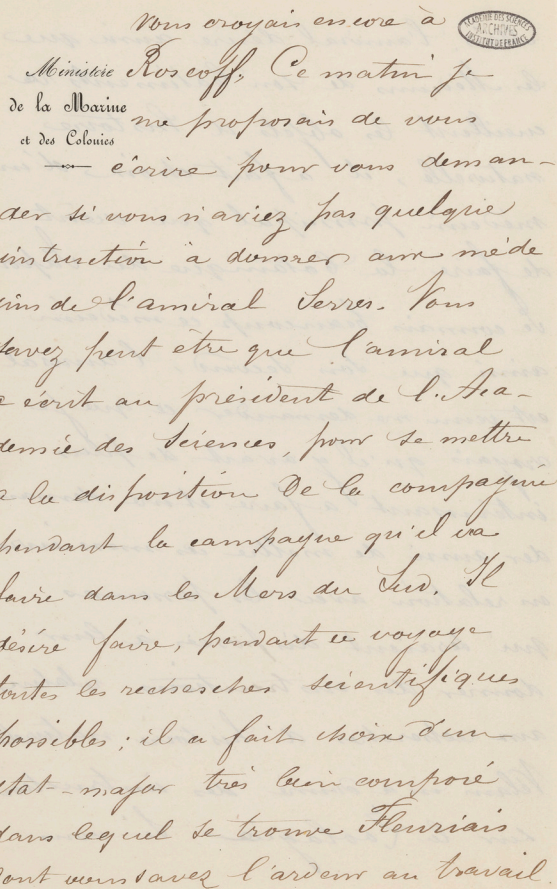 vous croyais encore à
ACADÉMIE DES SCIENCES
ARCHIVES
INSTITUT DE FRANCE
Ministère
de la Marine
et des Colonies
Roscoff. Ce matin je
me proposais de vous
écrire pour vous deman-
der si vous n'aviez pas quelque
instruction à donner aux méde
cins de l'amiral Serres. Vous
savez peut etre que l'amiral
a écrit au président de l'Aca-
démie des Sciences, pour se mettre
a la disposition De la compagnie
pendant la campagne qu'il va
faire dans les Mers du Sud. Il
désire faire, pendant ce voyage
toutes les recherches scientifiques
possibles ; il a fait choix d'un
état-major très bien composé
dans lequel se trouve Fleuriais
dont vous savez l'ardeur au travail